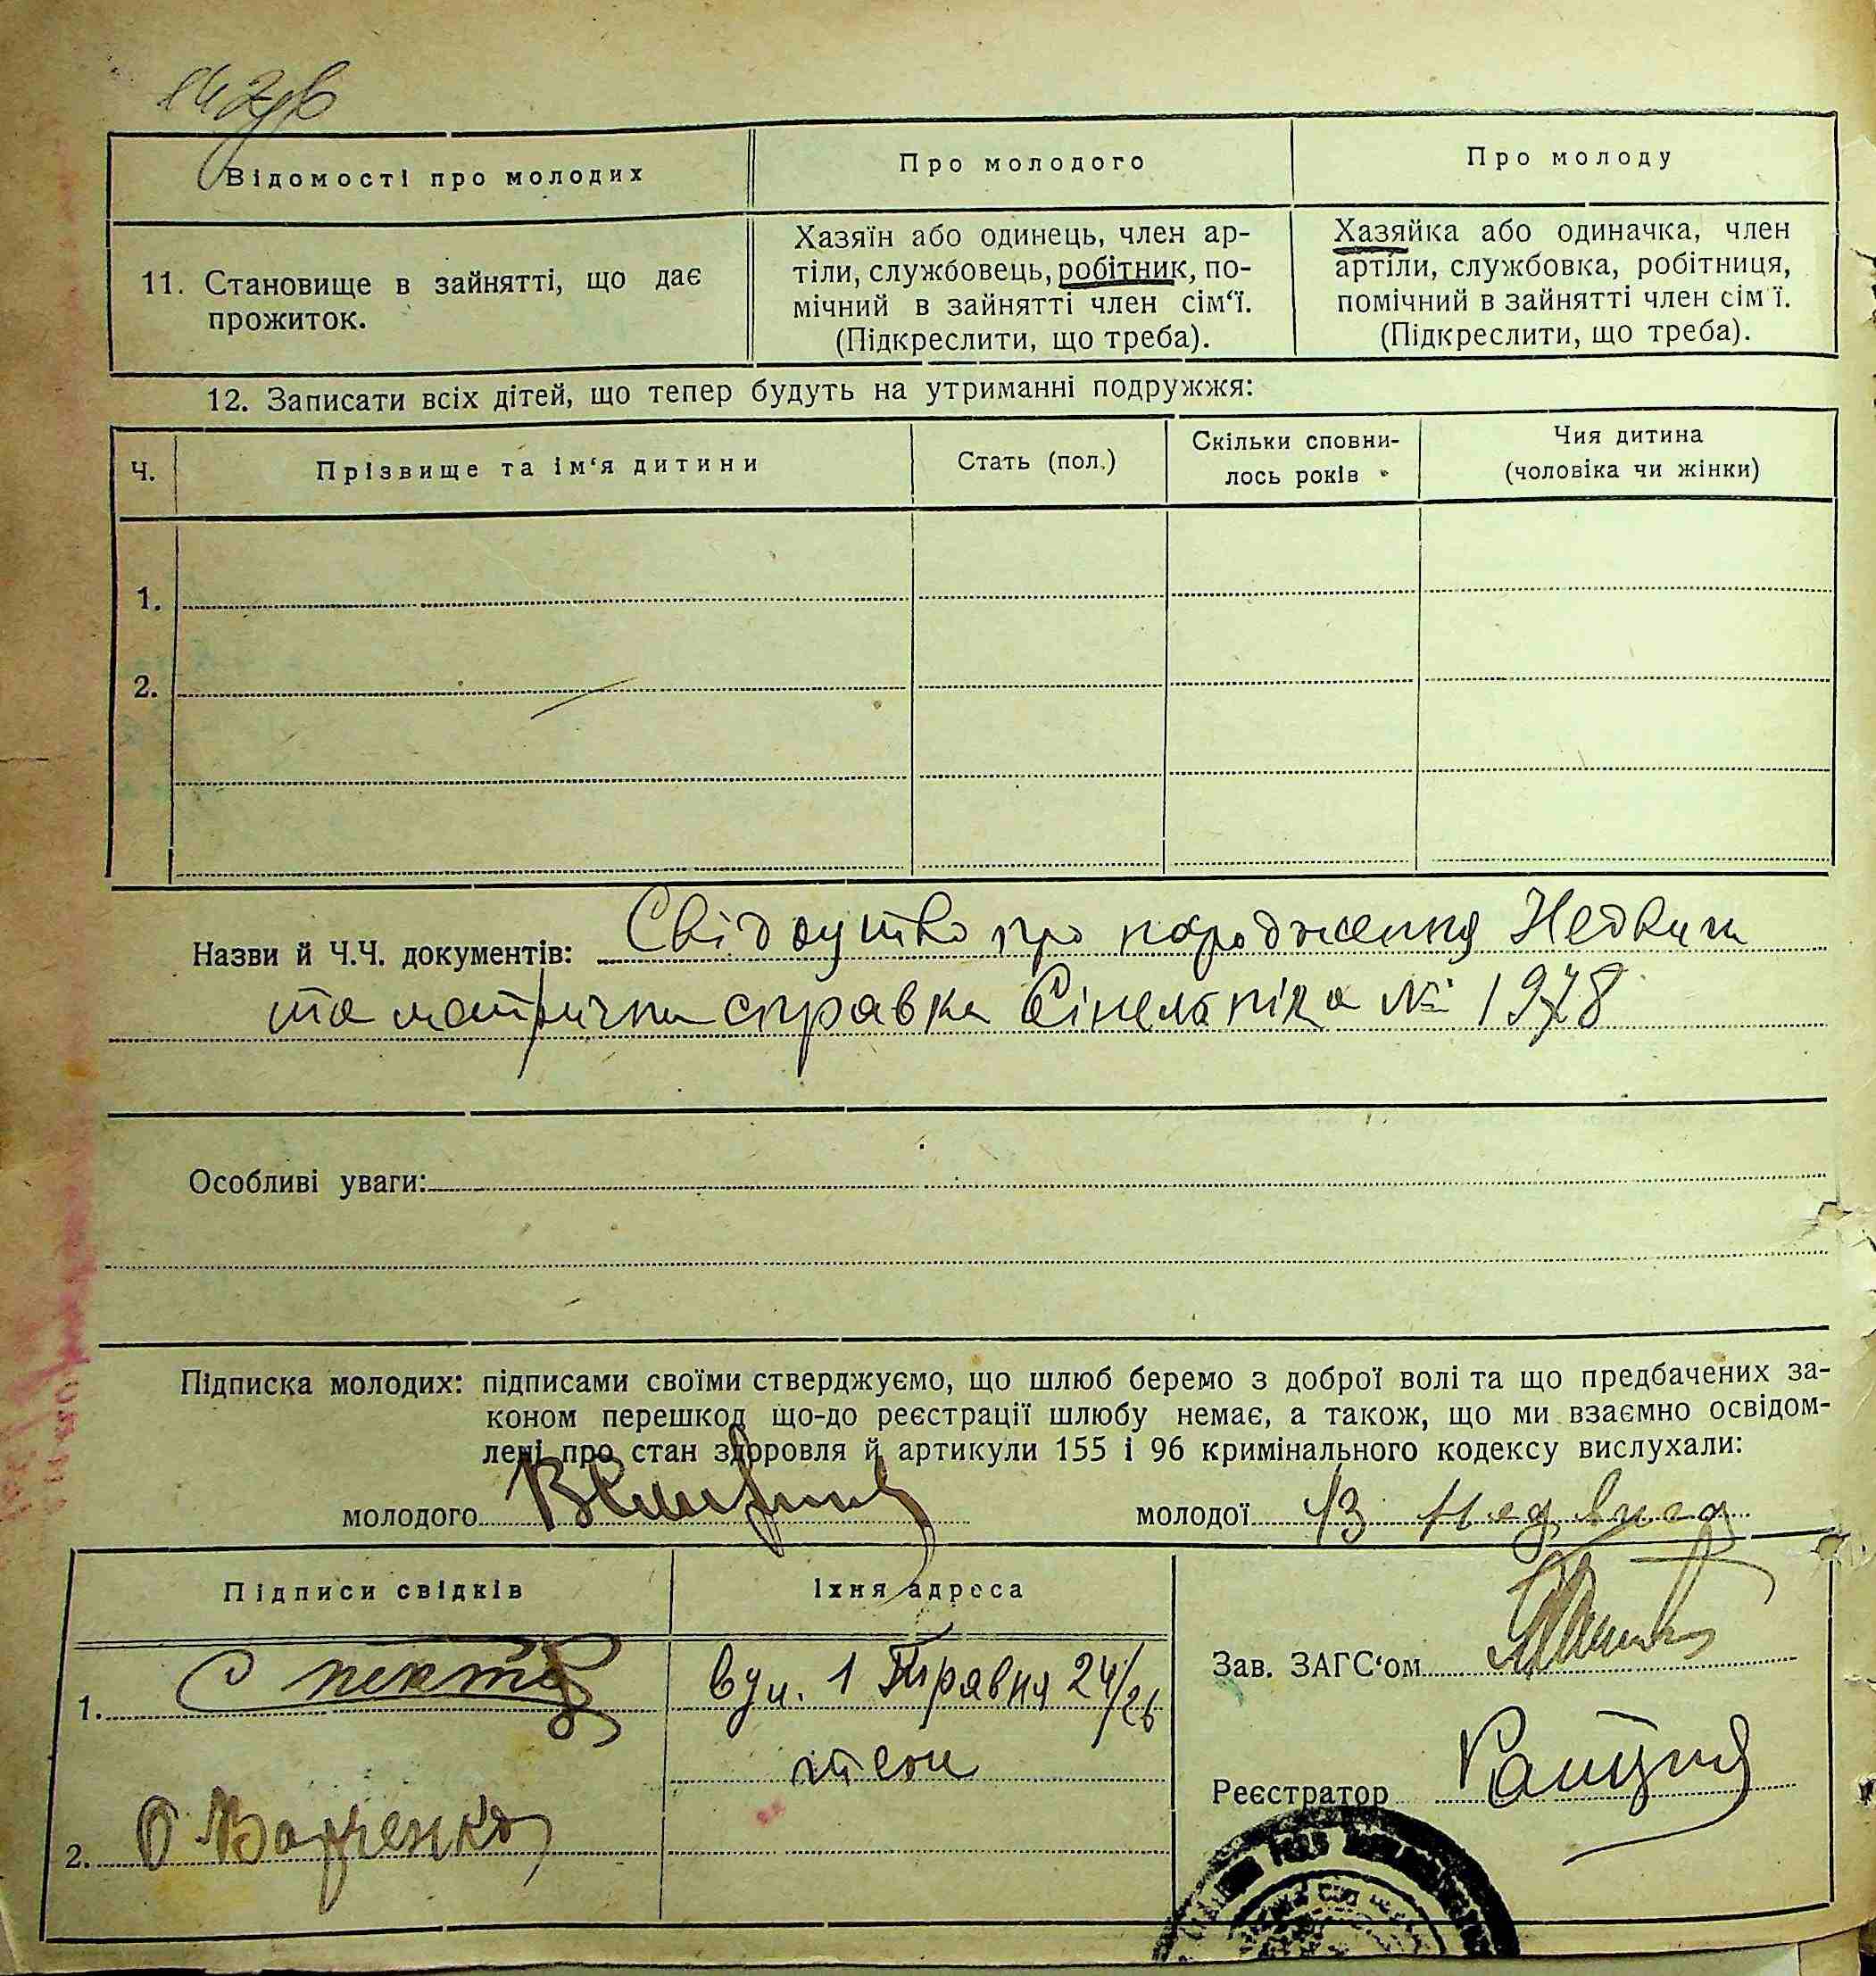 Відомості про молодих
Про молодого
Про молоду
11. Становище в зайнятті, що дає
прожиток.
Хазяїн або одинець, член ар-
тіли, службовець, робітник, по-
мічний в зайнятті член сім‘ї.
(Підкреслити, що треба).
Хазяйка або одиначка, член
артіли, службовка, робітниця,
помічний в зайнятті член сім ї.
(Підкреслити, що треба).
12. Записати всіх дітей, що тепер будуть на утриманні подружжя:
Ч.
Прізвище та ім‘я дитини
Стать (пол.)
Скільки сповни-
лось років
Чия дитина
(чоловіка чи жінки)
1.
2.
Назви й Ч.Ч. документів: Свідоцтво про народження
та метрична справка №
Особливі уваги:
Підписка молодих: підписами своїми стверджуємо, що шлюб беремо з доброї волі та що предбачених за-
коном перешкод що-до реєстрації шлюбу немає, а також, що ми взаємно освідом-
лені про стан здоровля й артикули 155 і 96 кримінального кодексу вислухали:
молодого
молодої
Підписи свідків
Їхня адреса
Зав. ЗАГС‘ом
1.
вул. 1 24/26
Реєстратор
2.